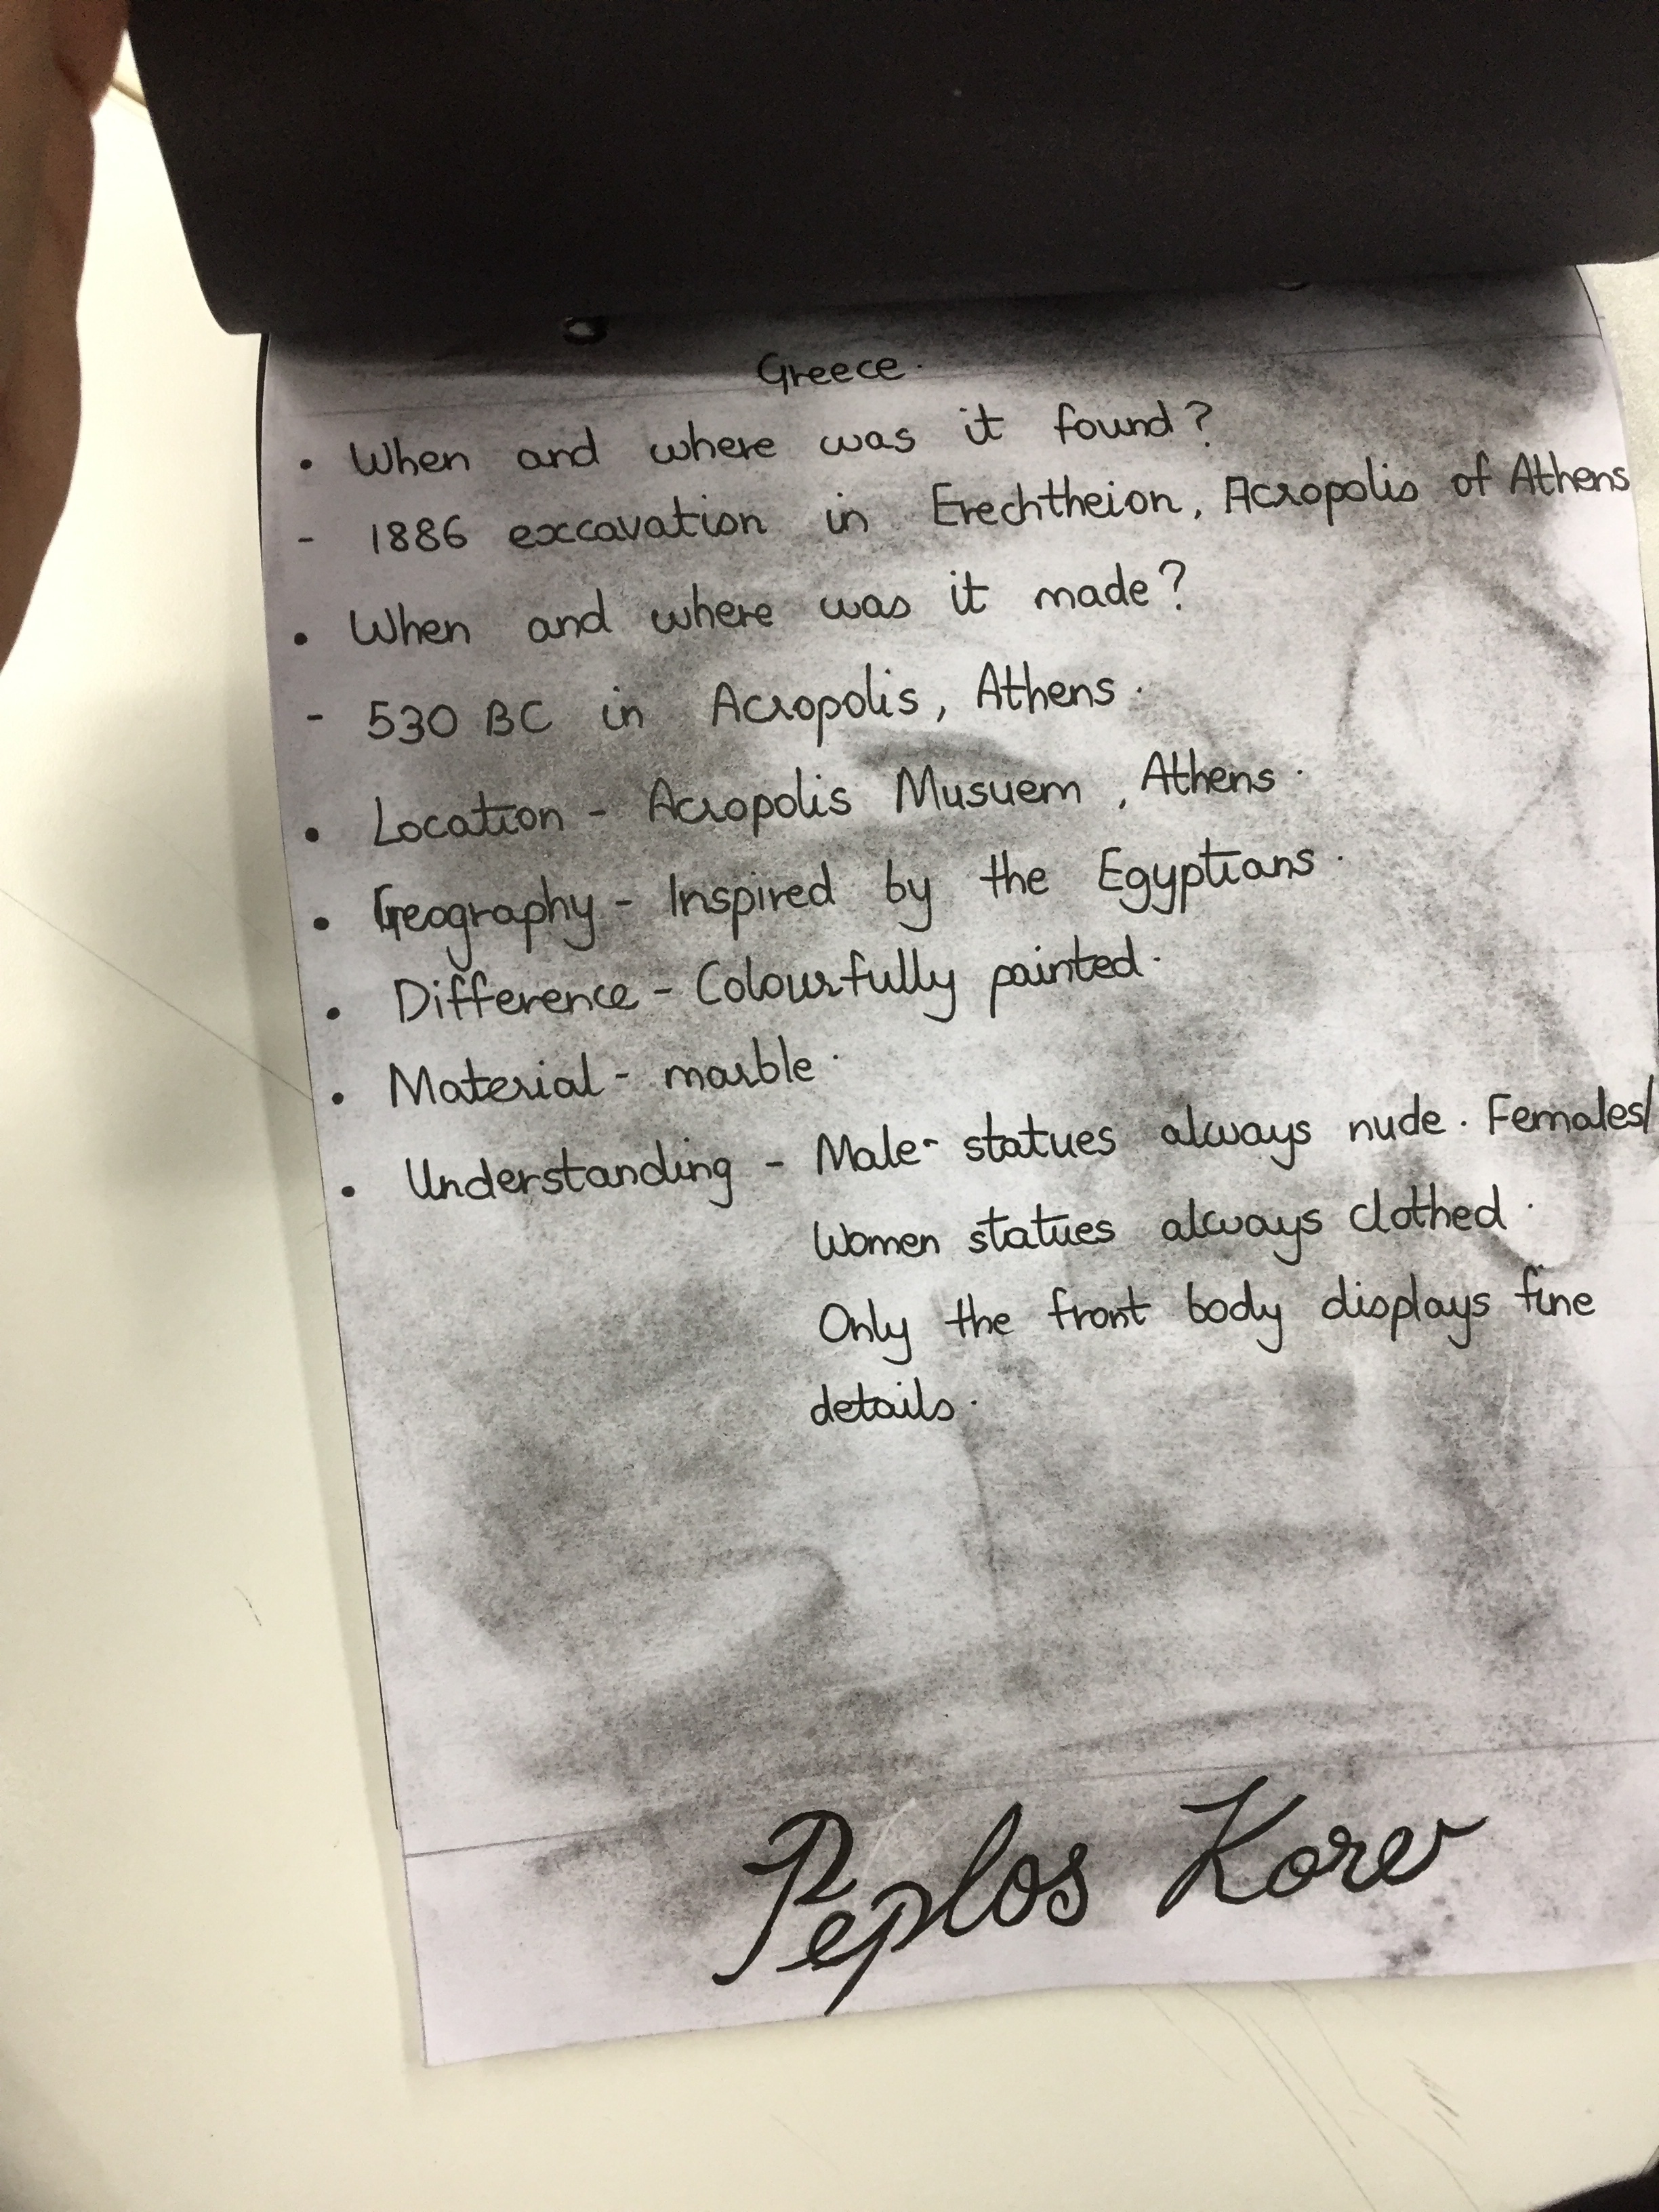 Greece.
• When and where was it found?
- 1886 excavation in Erechtheion, Acropolis of Athens
• When and where was it made?
- 530 BC in Acropolis, Athens.
• Location - Acropolis Musuem, Athens.
• Geography - Inspired by the Egyptians.
• Difference - Colourfully painted.
• Material - marble.
• Understanding - Male statues always nude. Females/
Women statues always clothed.
Only the front body displays fine
details.
Peplos Kore